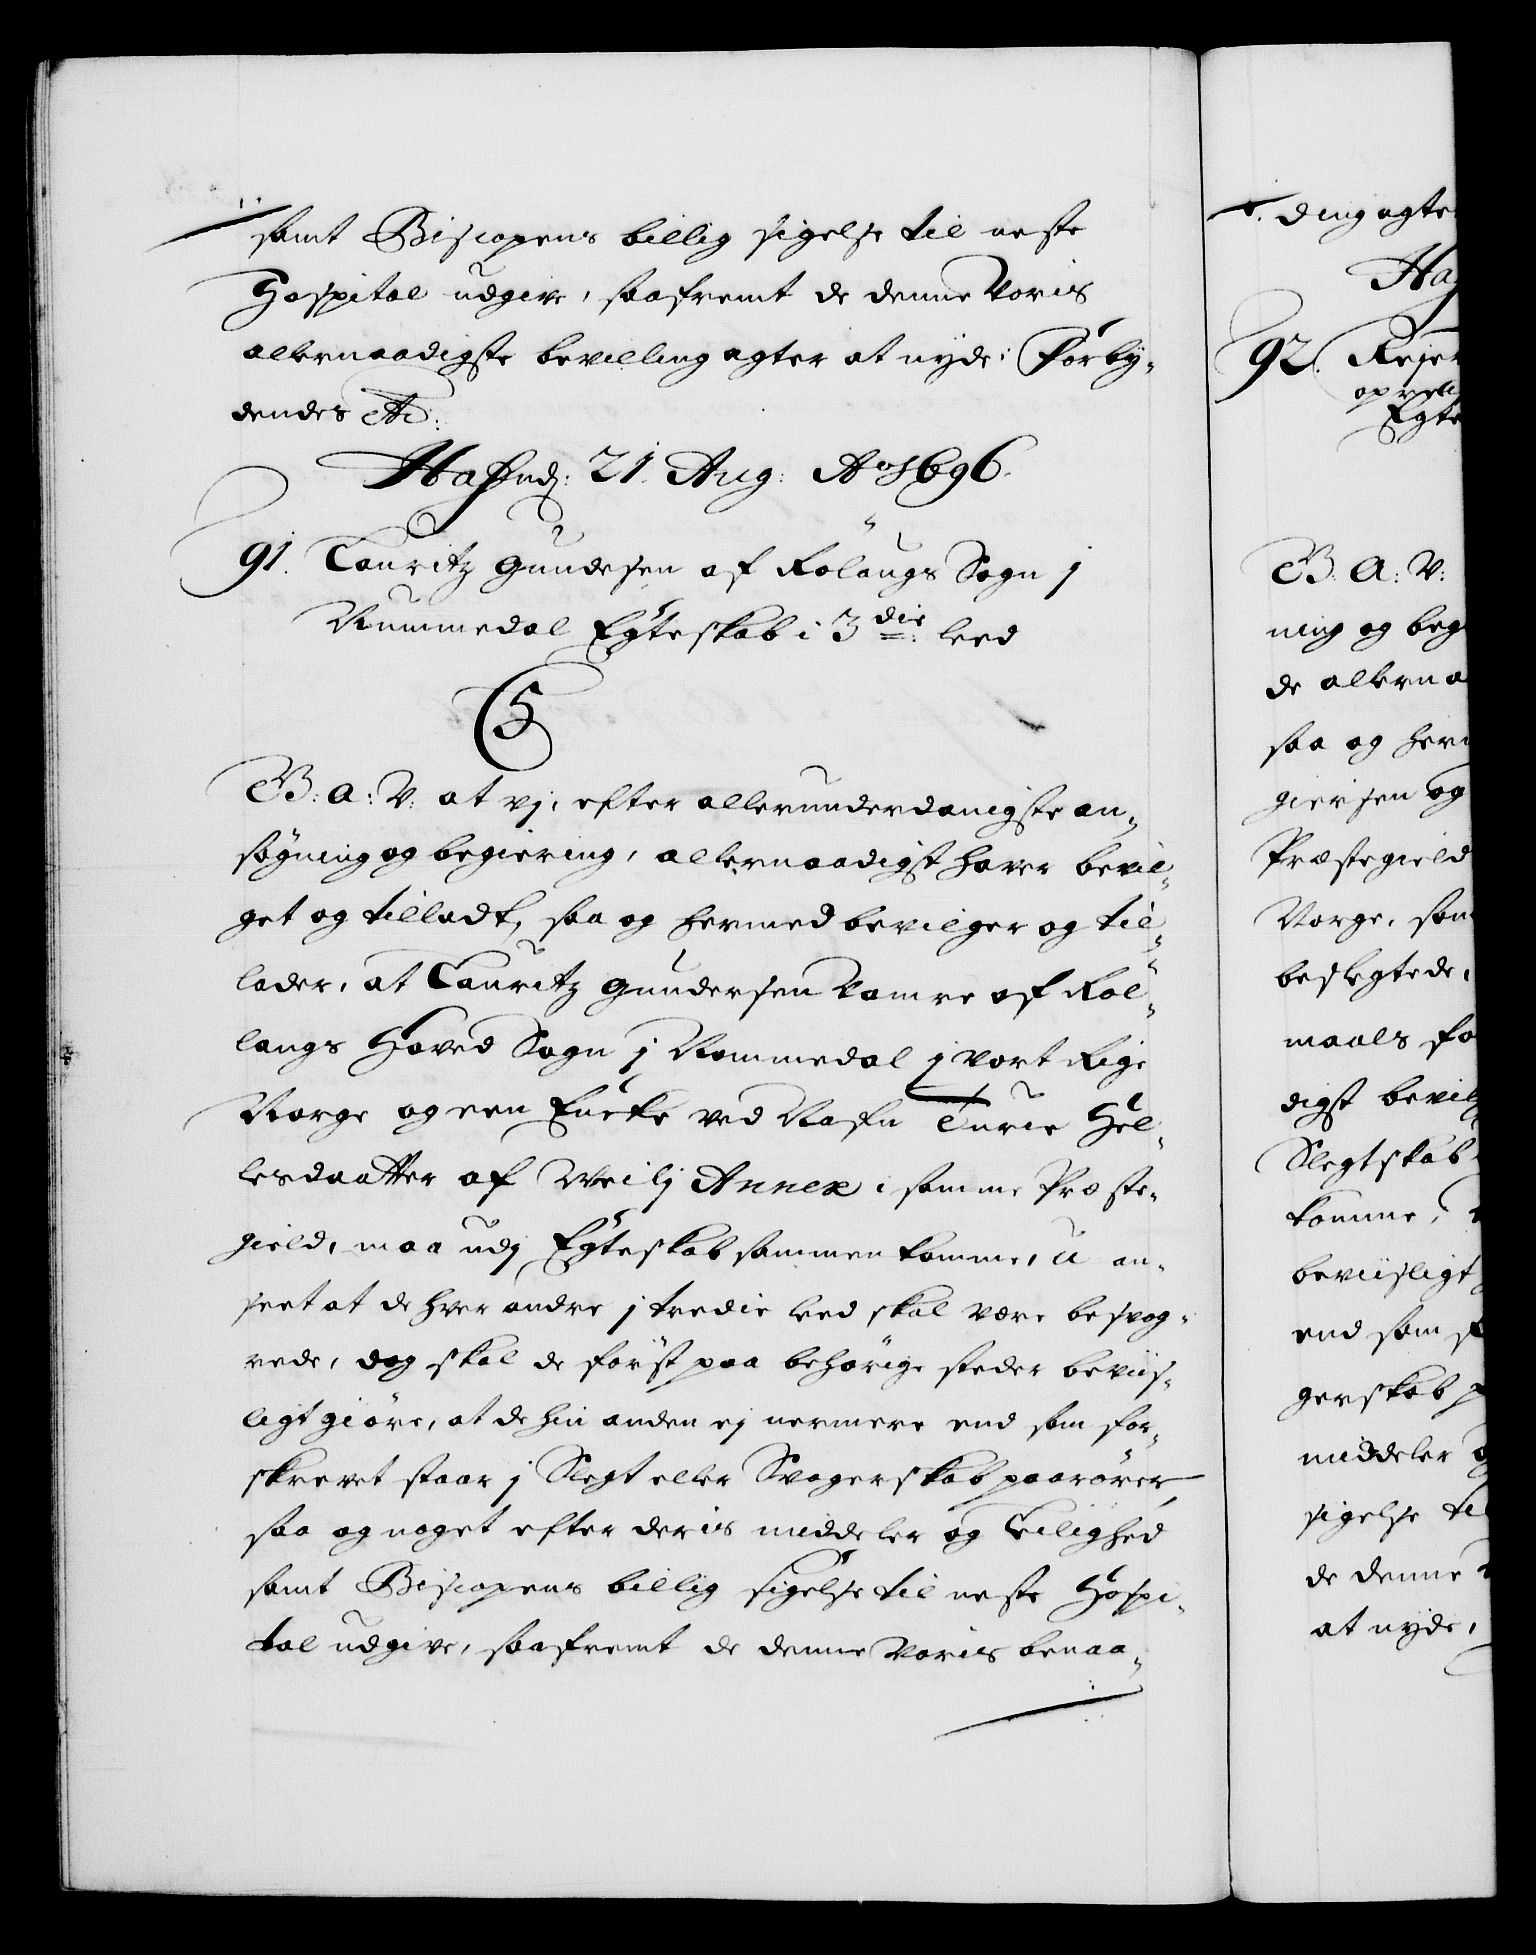 samt Biscopens billig sigelse til neste
Hospital udgive, saafremt de denne Voris
allernaadigste bevilling agter at nyde: Forby-
dendes etc:
Hafnd: 21. Aug: Ao 1696.
91. Lauritz Gundesen af Rölaugs Sogn j
Nummedal Egteskab i 3die: leed
5
G: A: V: at vj, efter allerunderdanigste an-
søgning og begiering, allernaadigst haver bevil-
get og tilladt, saa og hermed bevilger og til-
lader, at Lauritz Gundersen Vamre af Rol-
laugs Hoved Sogn j Nommedal j vort Rige
Norge og een Encke ved Nafn Turie Hel-
lesdaatter af Weilj Annex i samme Præste-
gield, maa udj Egteskab sammenkomme, u an-
seet at de hver andre j tredie leed skal være besvog-
rede, dog skal de först paa behörige steder beviis-
ligt giöre, at de hin anden ej nermere end som for-
skrevet staar j Slegt eller Svogerskab paarörer,
saa og noget efter deris middeler og Leilighed
samt Biscopens billig sigelse til neste Hospi-
tal udgive, saafremt de denne Voris benaa-
ding agte
Haf
92. Rejer
opret
Egte
G: A: V:
ning og beg
de allerna
saa og her
giersen og
Præstegield
Norge, som
beslegtede,
maals fo
digst bevil
Slegtskab
komme,
beviisligt
end som f
gerskab p
middeler og
sigelse til
de denne
at nyde,